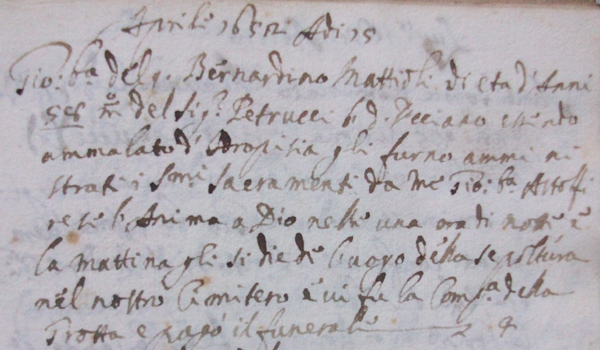 Aprile 1652 Adi 15
Gio: bā del q. Bernardino Mattioli di eta d'Anni
del Sigr Petrucci essendo
ammalato d'Idropisia gli furno ammini
strati i Smi sacramenti da me Gio: bā Astolfi
rese l'Anima a Dio nelle una ora di notte e
la mattina gli si diede luogo della sepoltura
nel nostro Cimitero e vi fu la Compa della
Grotta e pagò il funerale